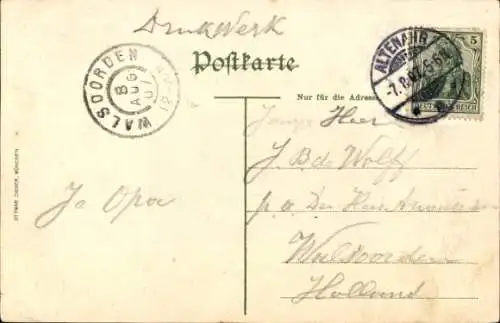 Drukwerk
Postkarte
Nur für die Adresse
WALSOORDEN
8 AUG 07
ALTENAHR
-7.8.07. 5-6N
5
DEUTSCHES REICH
OTTMAR ZIEHER, MÜNCHEN
Heer
J Bd Wolff
p.a. Den Heer
Walsoorden
Holland
Ja Opa